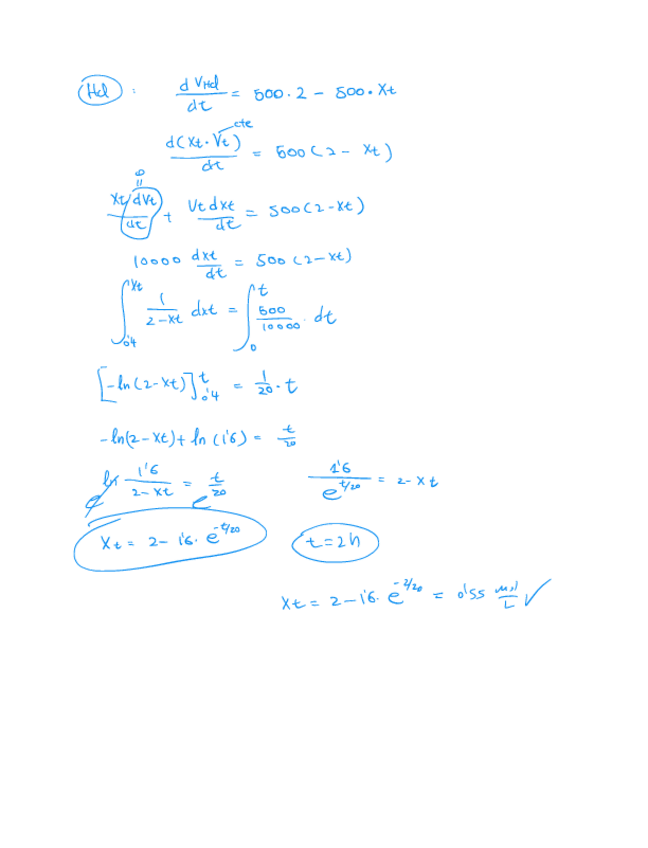 HCl : d VHCl / dt = 500 · 2 - 500 · Xt
d(Xt · Vt) / dt = 500 (2 - Xt)
cte
0
Xt dVt / dt + Vt dxt / dt = 500 (2 - Xt)
10000 dxt / dt = 500 (2 - Xt)
∫_{0'4}^{Xt} 1 / (2 - Xt) dxt = ∫_0^t 500 / 10000 · dt
[-ln(2 - Xt)]_{0'4}^{t} = 1/20 · t
-ln(2 - Xt) + ln(1'6) = t/20
e^{ln 1'6 / (2 - Xt)} = e^{t/20}
1'6 / e^{t/20} = 2 - Xt
Xt = 2 - 1'6 · e^{-t/20}
t = 2h
Xt = 2 - 1'6 · e^{-2/20} = 0'55 mol/L ✓